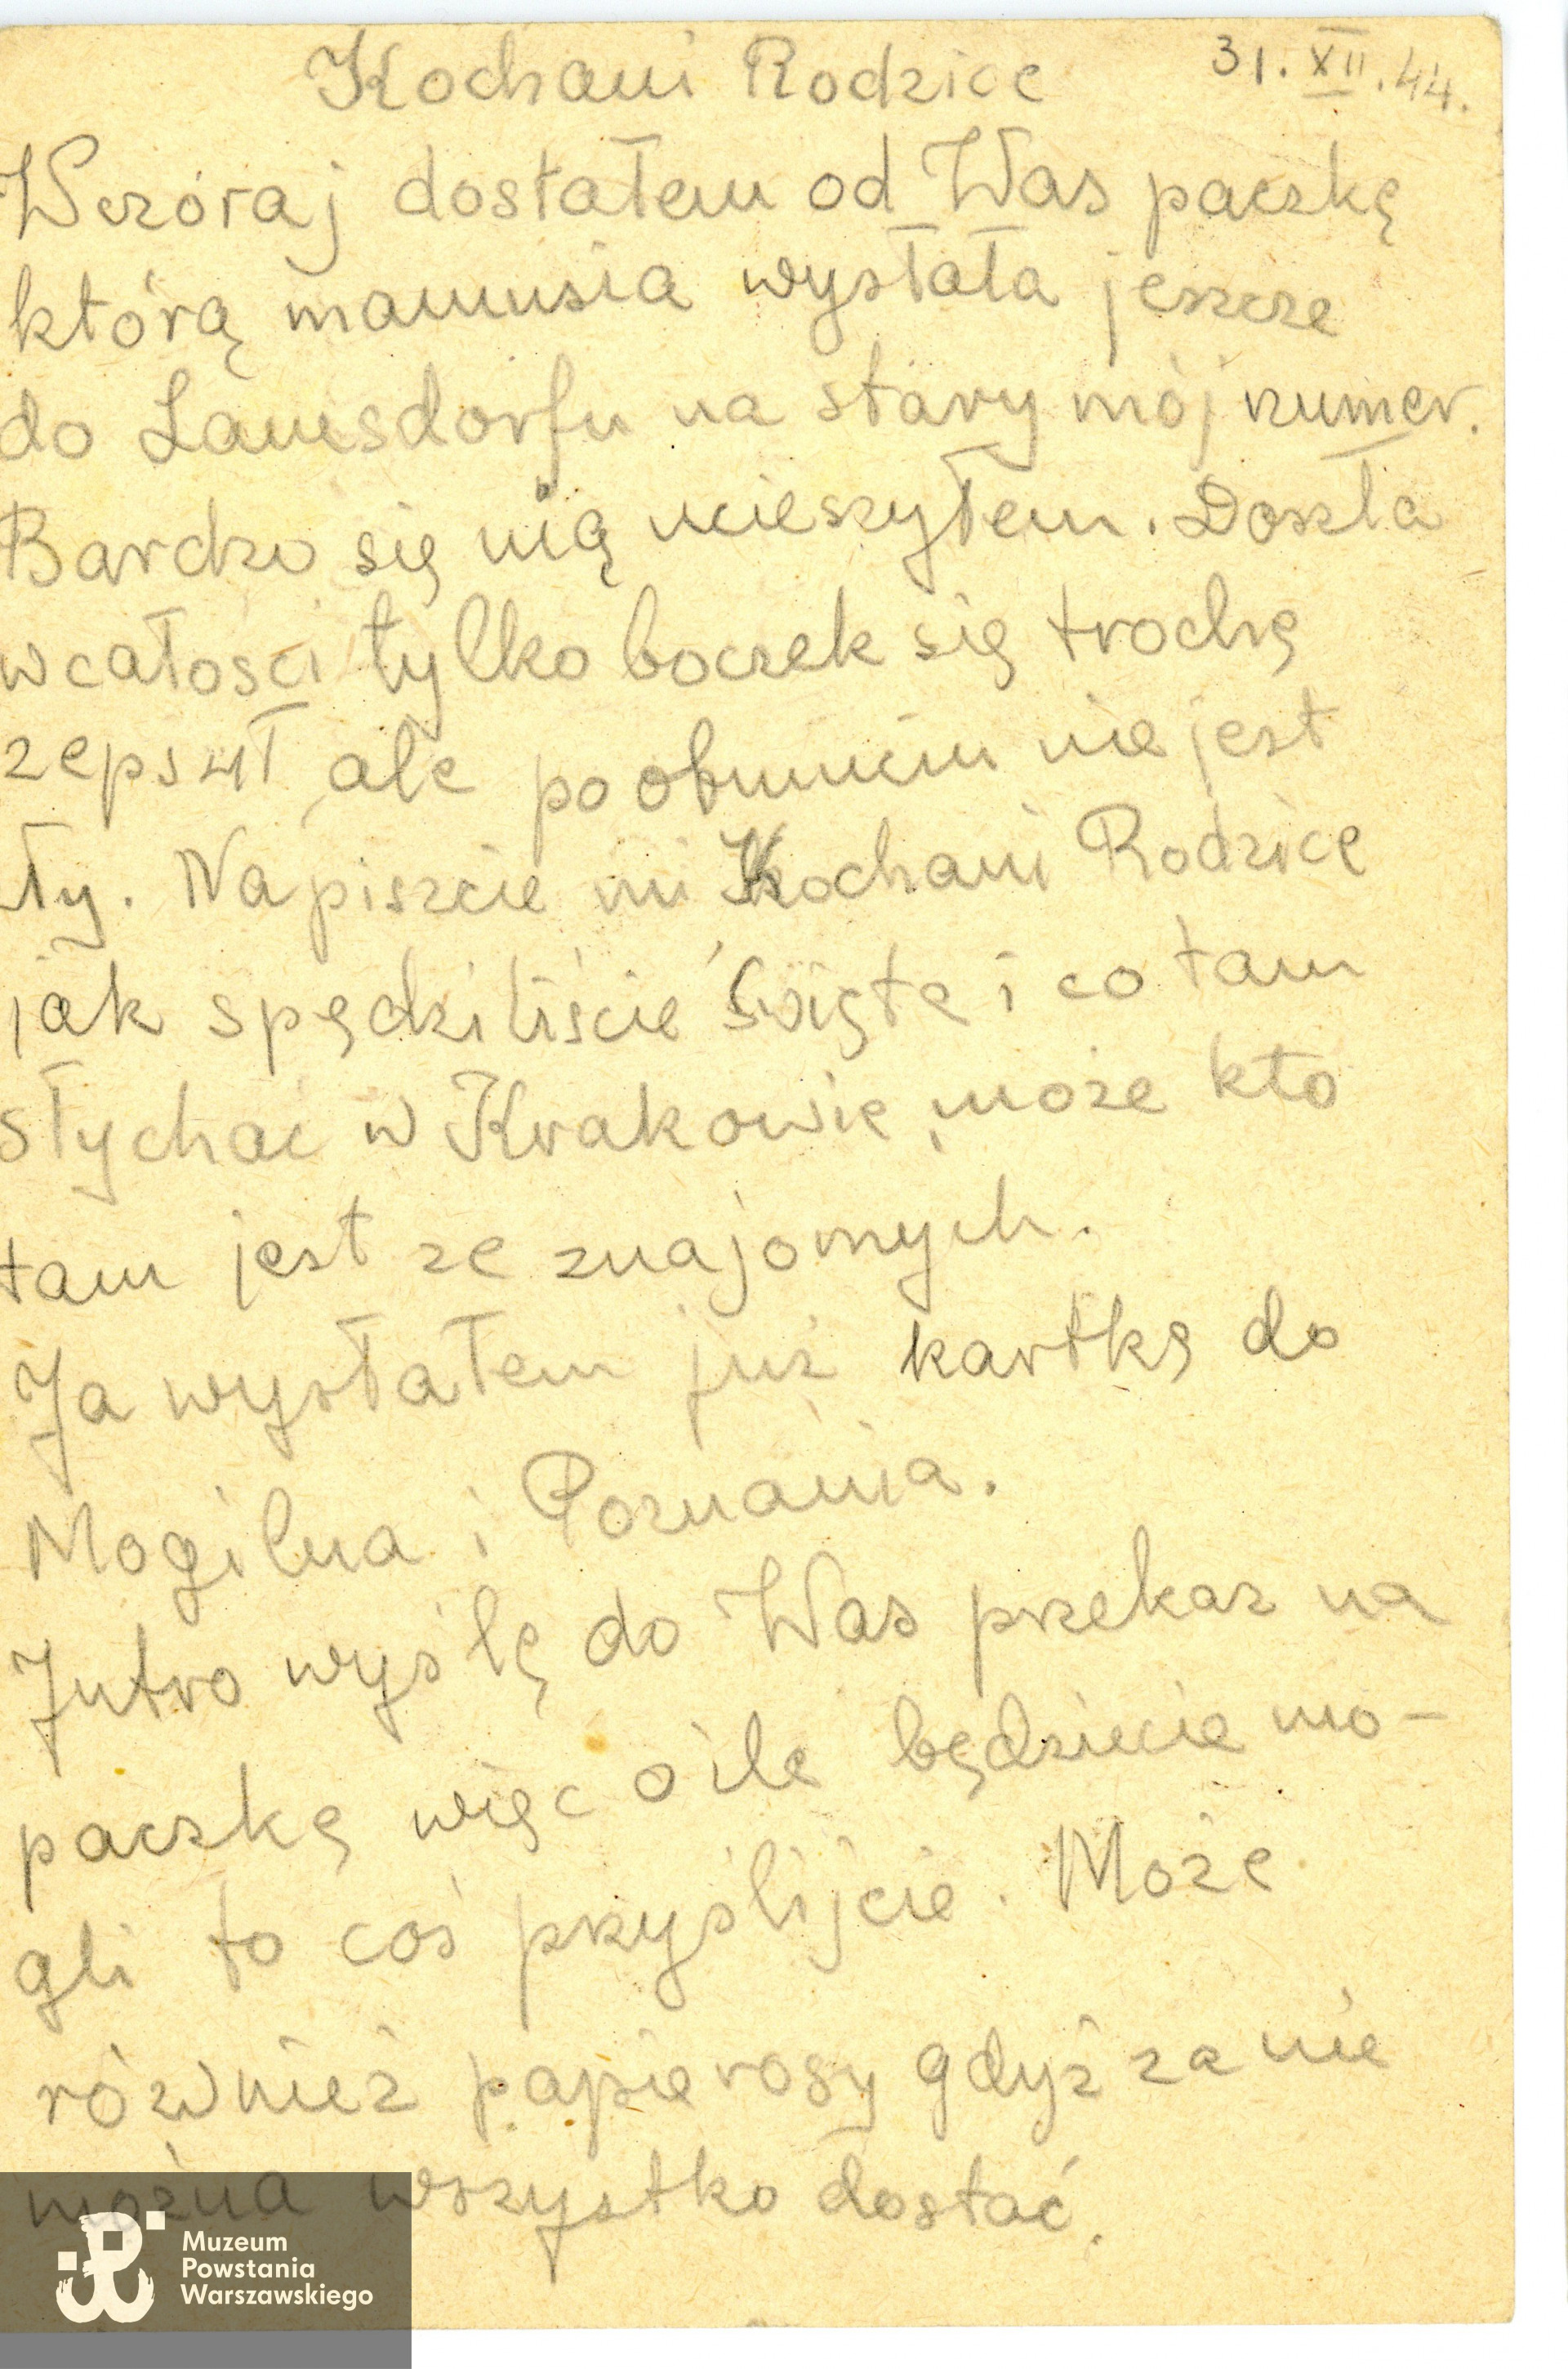 31.XII.44.
Kochani Rodzice
Wczóraj dostałem od Was paczkę
którą mamusia wysłała jeszcze
do Lamsdorfu na stary mój numer.
Bardzo się nią ucieszyłem. Doszła
w całosci tylko boczek się trochę
zepsuł, ale po obmyciu nie jest
zły. Napiszcie mi Kochani Rodzice
jak spędziliście Święta i co tam
słychac w Krakowie, może kto
tam jest ze znajomych.
Ja wysłałem już kartkę do
Mogilna i Poznania.
Jutro wyślę do Was przekaz na
paczkę więc o ile będziecie mo-
gli to coś przyślijcie. Może
również papierosy gdyż za nie
można wszystko dostać.
Muzeum
Powstania
Warszawskiego